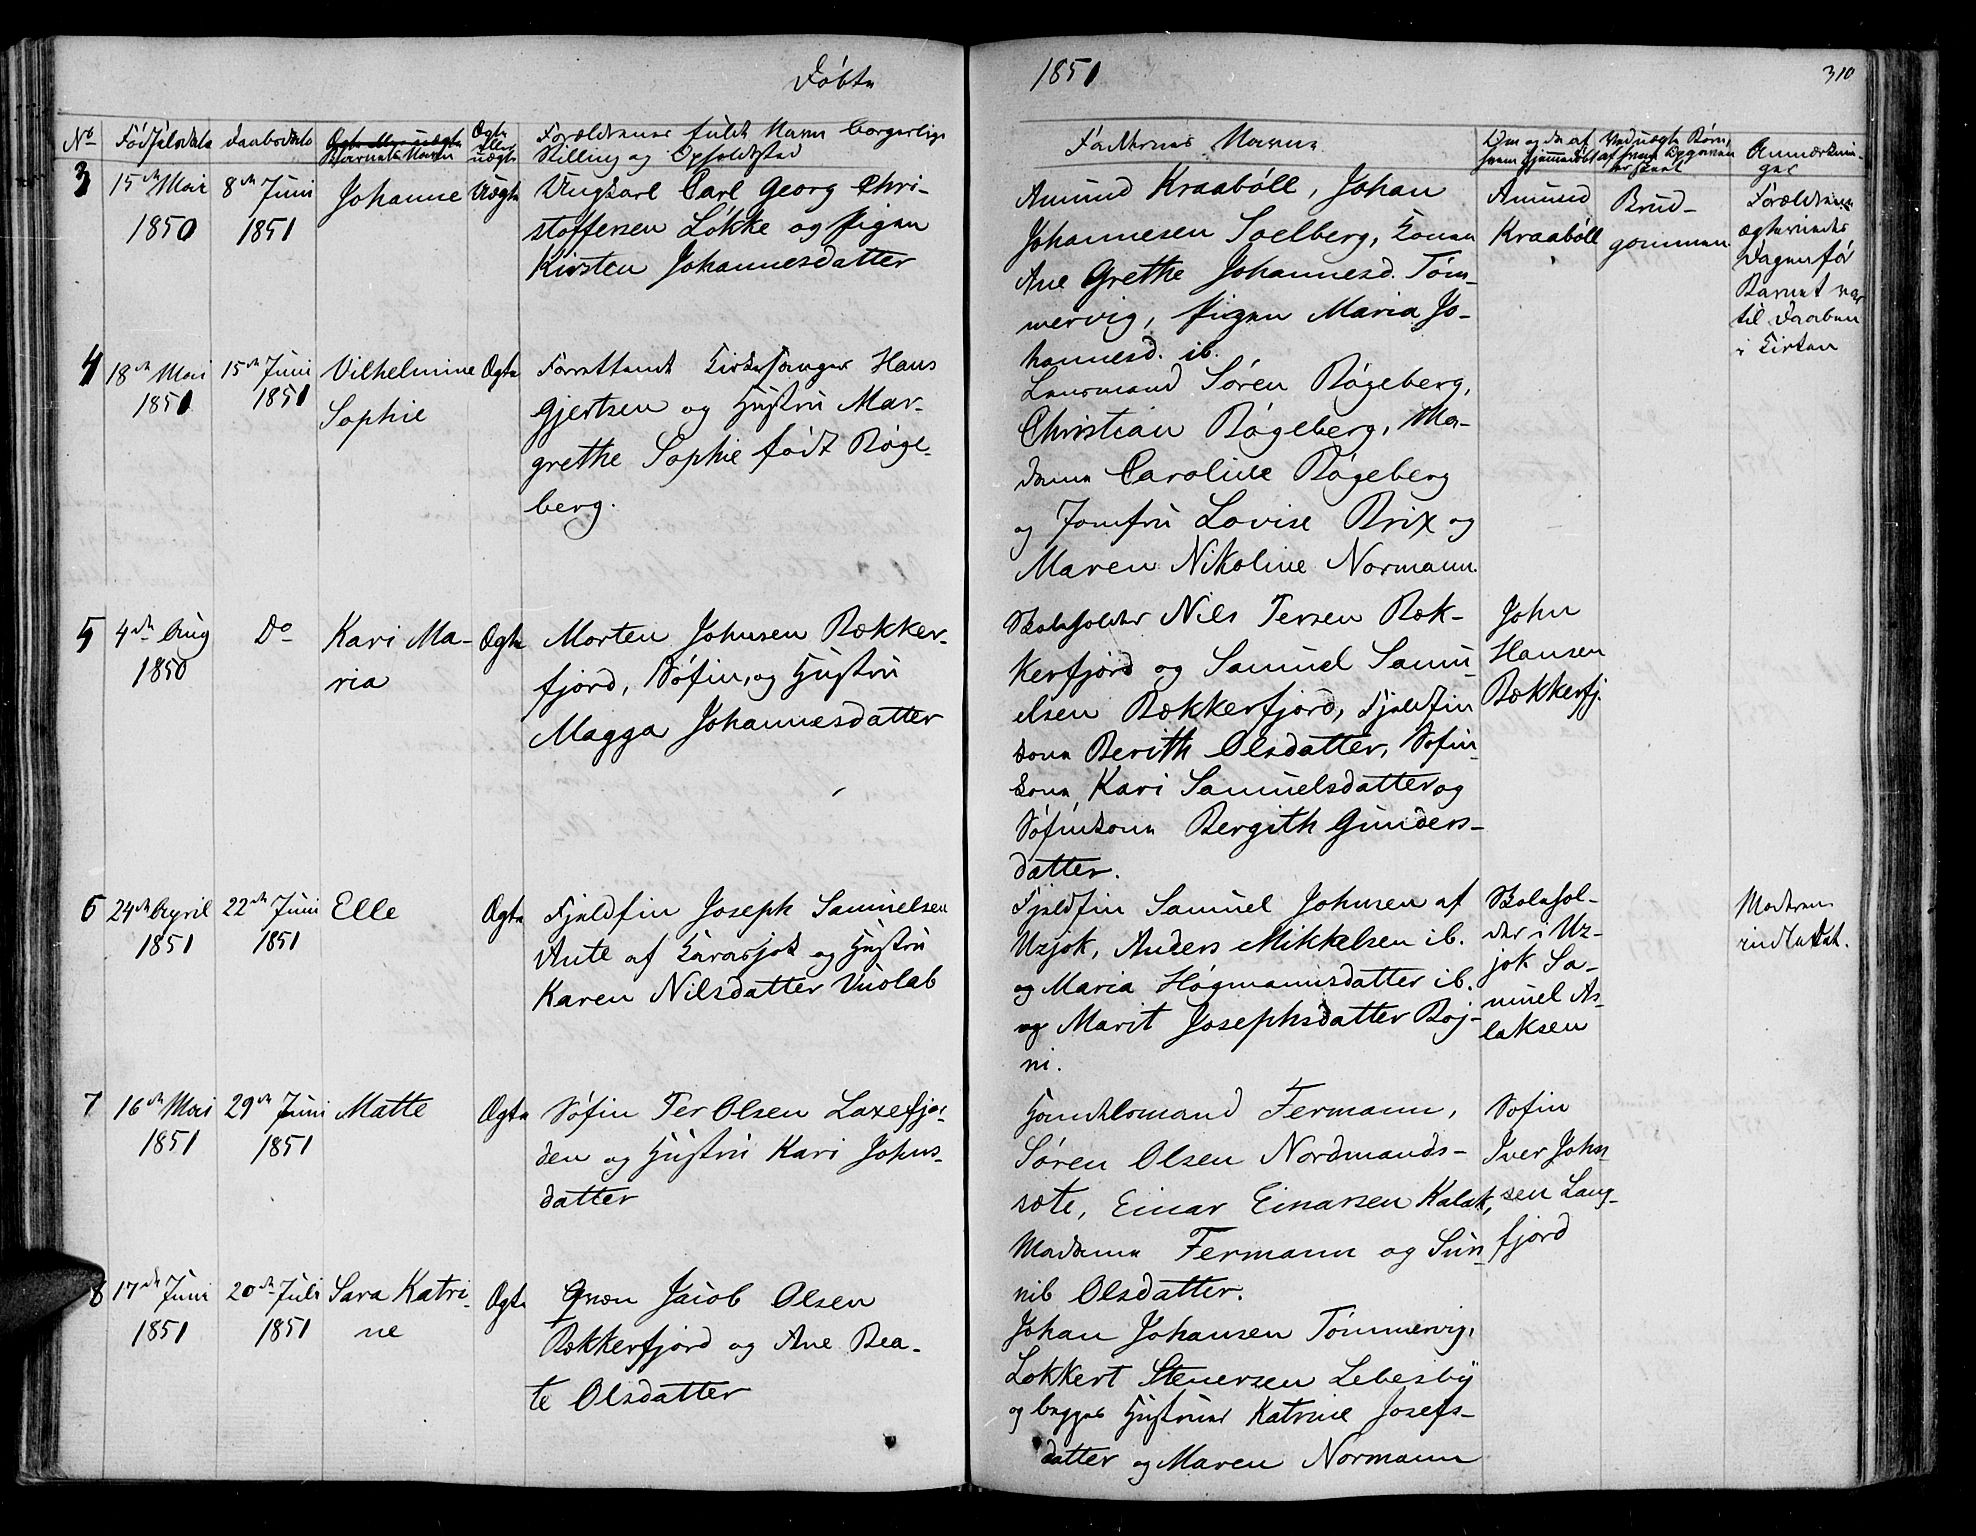 Döbte
1851
310
No
Födselsdato
Daabsdato
Barnets Navn
Ægte
eller
uægte
Forældrenes fulde Navn borgerlige
Stilling og Opholdssted
Faddernes Navne
Om og da af
hvem hjemmedöbt
Ved uægte Börn,
af hvem Opgaven
er skeet
Anmærknin-
ger
3
15de Mai
1850
8de Juni
1851
Johanne
Uægte
Ungkarl Carl Georg Chri-
stoffersen Lökke og Pigen
Kirsten Johannesdatter
Amund Kraaböll, Johan
Johannesen Soelberg, Konen
Ane Grethe Johannesd. Töm-
mervig, Pigen Maria Jo-
hannesd. ib.
Amund
Kraaböll
Brud-
gommen
Forældrene
ægteviedes
Dagen för
Barnet var
til Daaben
i Kirken
4
18de Mai
1851
15de Juni
1851
Vilhelmine
Sophie
Ægte
Forrettende Kirkesanger Hans
Gjertsen og Hustru Mar-
grethe Sophie födt Röge-
berg.
Lensmand Sören Rögeberg,
Christian Rögeberg, Ma-
dame Caroline Rögeberg
og Jomfru Lovise Brix og
Maren Nikoline Normann.
5
4de Aug
1850
Do
Kari Ma-
ria
Ægte
Morten Johnsen Bekker-
fjord, Söfin, og Hustru
Magga Johannesdatter
Skoleholder Nils Persen Bek-
kerfjord og Samuel Samu
elsen Bekkerfjord, Fjeldfin
kone Berith Olsdatter, Söfin-
kone Kari Samuelsdatter og
Söfinkone Bergith Gunders-
datter.
John
Hansen
Bekkerfj.
6
24de April
1851
22de Juni
1851
Elle
Ægte
Fjeldfin Joseph Samuelsen
Aute af Karasjok og Hustru
Karen Nilsdatter Vuolab
Fjeldfin Samuel Johnsen af
Uzjok, Anders Mikkelsen ib.
og Maria Högmannsdatter ib.
og Marit Josephsdatter Böj-
ni.
Skolehol-
der i Uz-
jok Sa-
muel As-
laksen
Moderen
indledet.
7
16de Mai
1851
29de Juni
1851
Matte
Ægte
Söfin Per Olsen Laxefjor
den og Hustru Kari Johns-
datter
Handelsmand Fermann,
Sören Olsen Nordmands-
sæte, Einar Einarsen Kalak,
Madame Fermann og Sun
nib Olsdatter.
Söfin
Iver John-
sen Lang-
fjord
8
17de Juni
1851
20de Juli
1851
Sara Katri-
ne
Ægte
Qvæn Jacob Olsen
Bekkerfjord og Ane Bea-
te Olsdatter
Johan Johansen Tömmervig,
Lokkert Stenersen Lebesby
og begges Hustruer Katrine Josefs-
datter og Maren Normann